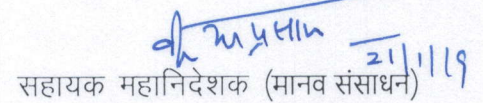 प्रसाद
21/1/19
सहायक महानिदेशक (मानव संसाधन)